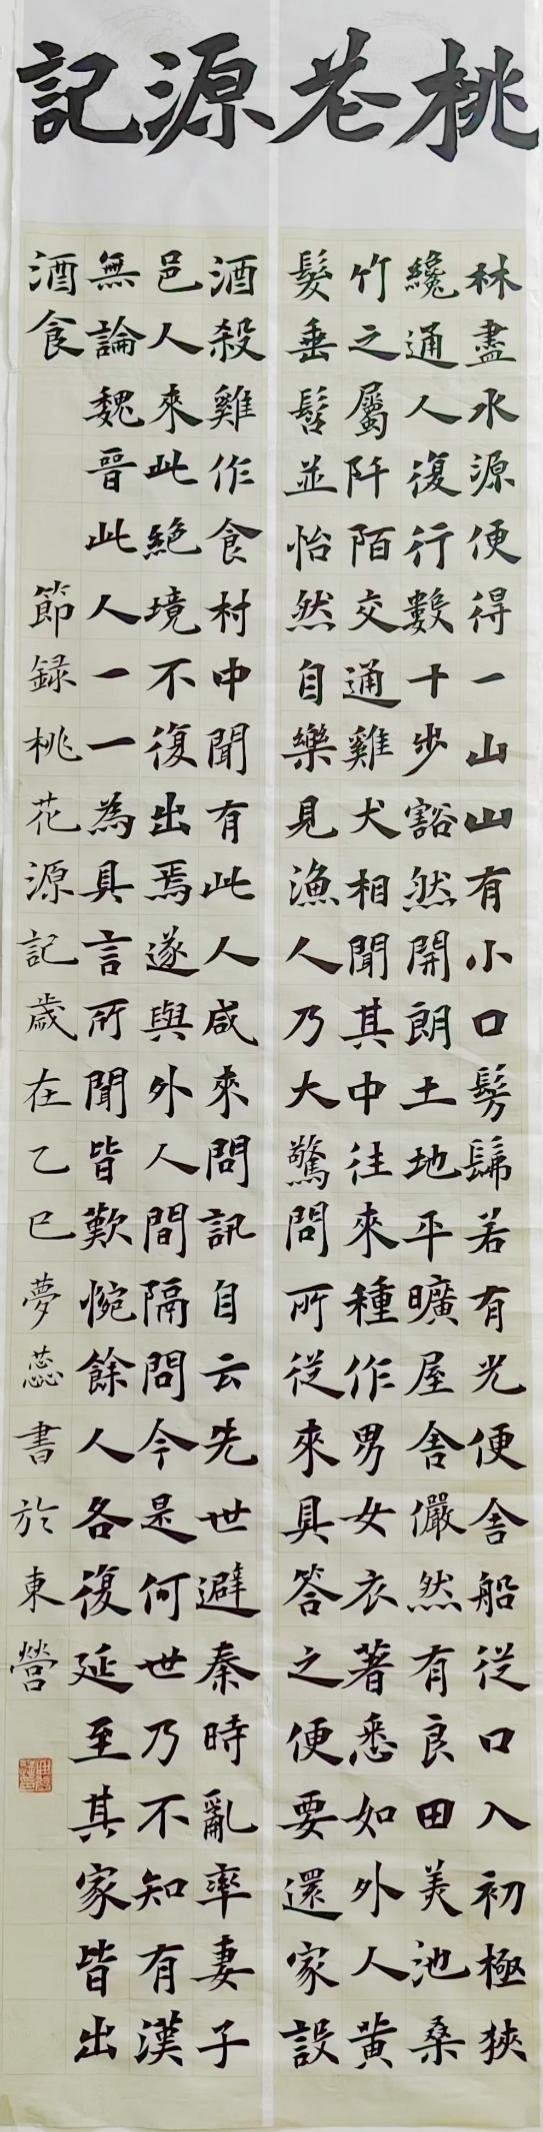 桃花源記
林盡水源便得一山山有小口髣髴若有光便舍船從口入初極狹
纔通人復行數十步豁然開朗土地平曠屋舍儼然有良田美池桑
竹之屬阡陌交通雞犬相聞其中往來種作男女衣著悉如外人黃
髮垂髫並怡然自樂見漁人乃大驚問所從來具答之便要還家設
酒殺雞作食村中聞有此人咸來問訊自云先世避秦時亂率妻子
邑人來此絶境不復出焉遂與外人間隔問今是何世乃不知有漢
無論魏晉此人一一為具言所聞皆歎惋餘人各復延至其家皆出
酒食 節録桃花源記歲在乙巳夢蕊書於東營